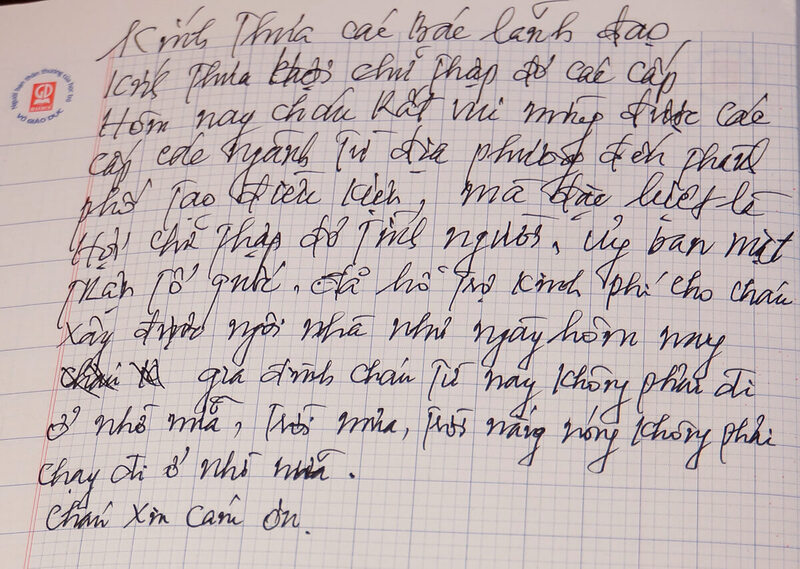 Kính Thưa các Bác lãnh đạo
Kính Thưa hội chữ Thập đỏ các cấp
Hôm nay cháu Rất vui mừng được các
cấp các ngành Từ địa phương đến thành
phố Tạo điều kiện, mà đặc biệt là
Hội chữ Thập đỏ Tình người, Ủy ban mặt
Trận Tổ quốc, đã hỗ Trợ kinh phí cho cháu
xây được ngôi nhà như ngày hôm nay
gia đình cháu Từ nay không phải đi
ở nhờ nữa, Trời mưa, Trời nắng nóng không phải
chạy đi ở nhờ nữa.
cháu xin cảm ơn.
VỞ GIÁO DỤC